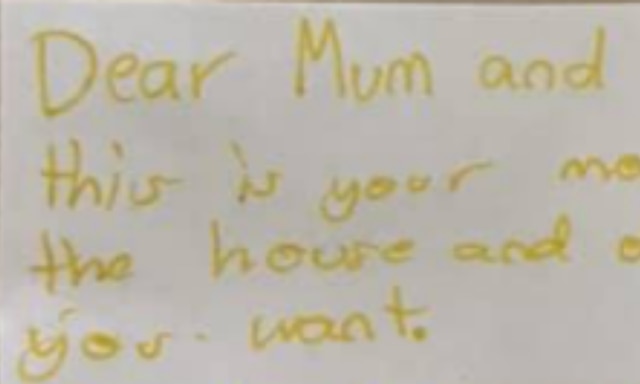 Dear Mum and
this is your
the house and
you want.